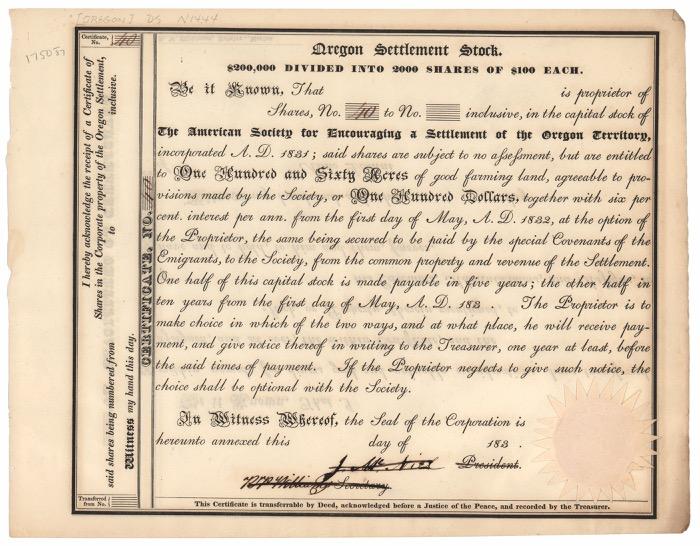 [OREGON] DS N1444
175057
Certificate, No. 40
I hereby acknowledge the receipt of a Certificate of
Shares in the Corporate property of the Oregon Settlement,
said shares being numbered from to inclusive.
Witness my hand this day.
Transferred from No.
CERTIFICATE, NO. 40
Oregon Settlement Stock.
$200,000 DIVIDED INTO 2000 SHARES OF $100 EACH.
Be it Known, That is proprietor of
Shares, No. 40 to No. inclusive, in the capital stock of
The American Society for Encouraging a Settlement of the Oregon Territory,
incorporated A. D. 1831; said shares are subject to no assessment, but are entitled
to One Hundred and Sixty Acres of good farming land, agreeable to pro-
visions made by the Society, or One Hundred Dollars, together with six per
cent. interest per ann. from the first day of May, A. D. 1832, at the option of
the Proprietor, the same being secured to be paid by the special Covenants of the
Emigrants, to the Society, from the common property and revenue of the Settlement.
One half of this capital stock is made payable in five years; the other half in
ten years from the first day of May, A. D. 183 . The Proprietor is to
make choice in which of the two ways, and at what place, he will receive pay-
ment, and give notice thereof in writing to the Treasurer, one year at least, before
the said times of payment. If the Proprietor neglects to give such notice, the
choice shall be optional with the Society.
In Witness Whereof, the Seal of the Corporation is
hereunto annexed this day of 183 .
President.
Secretary
This Certificate is transferrable by Deed, acknowledged before a Justice of the Peace, and recorded by the Treasurer.